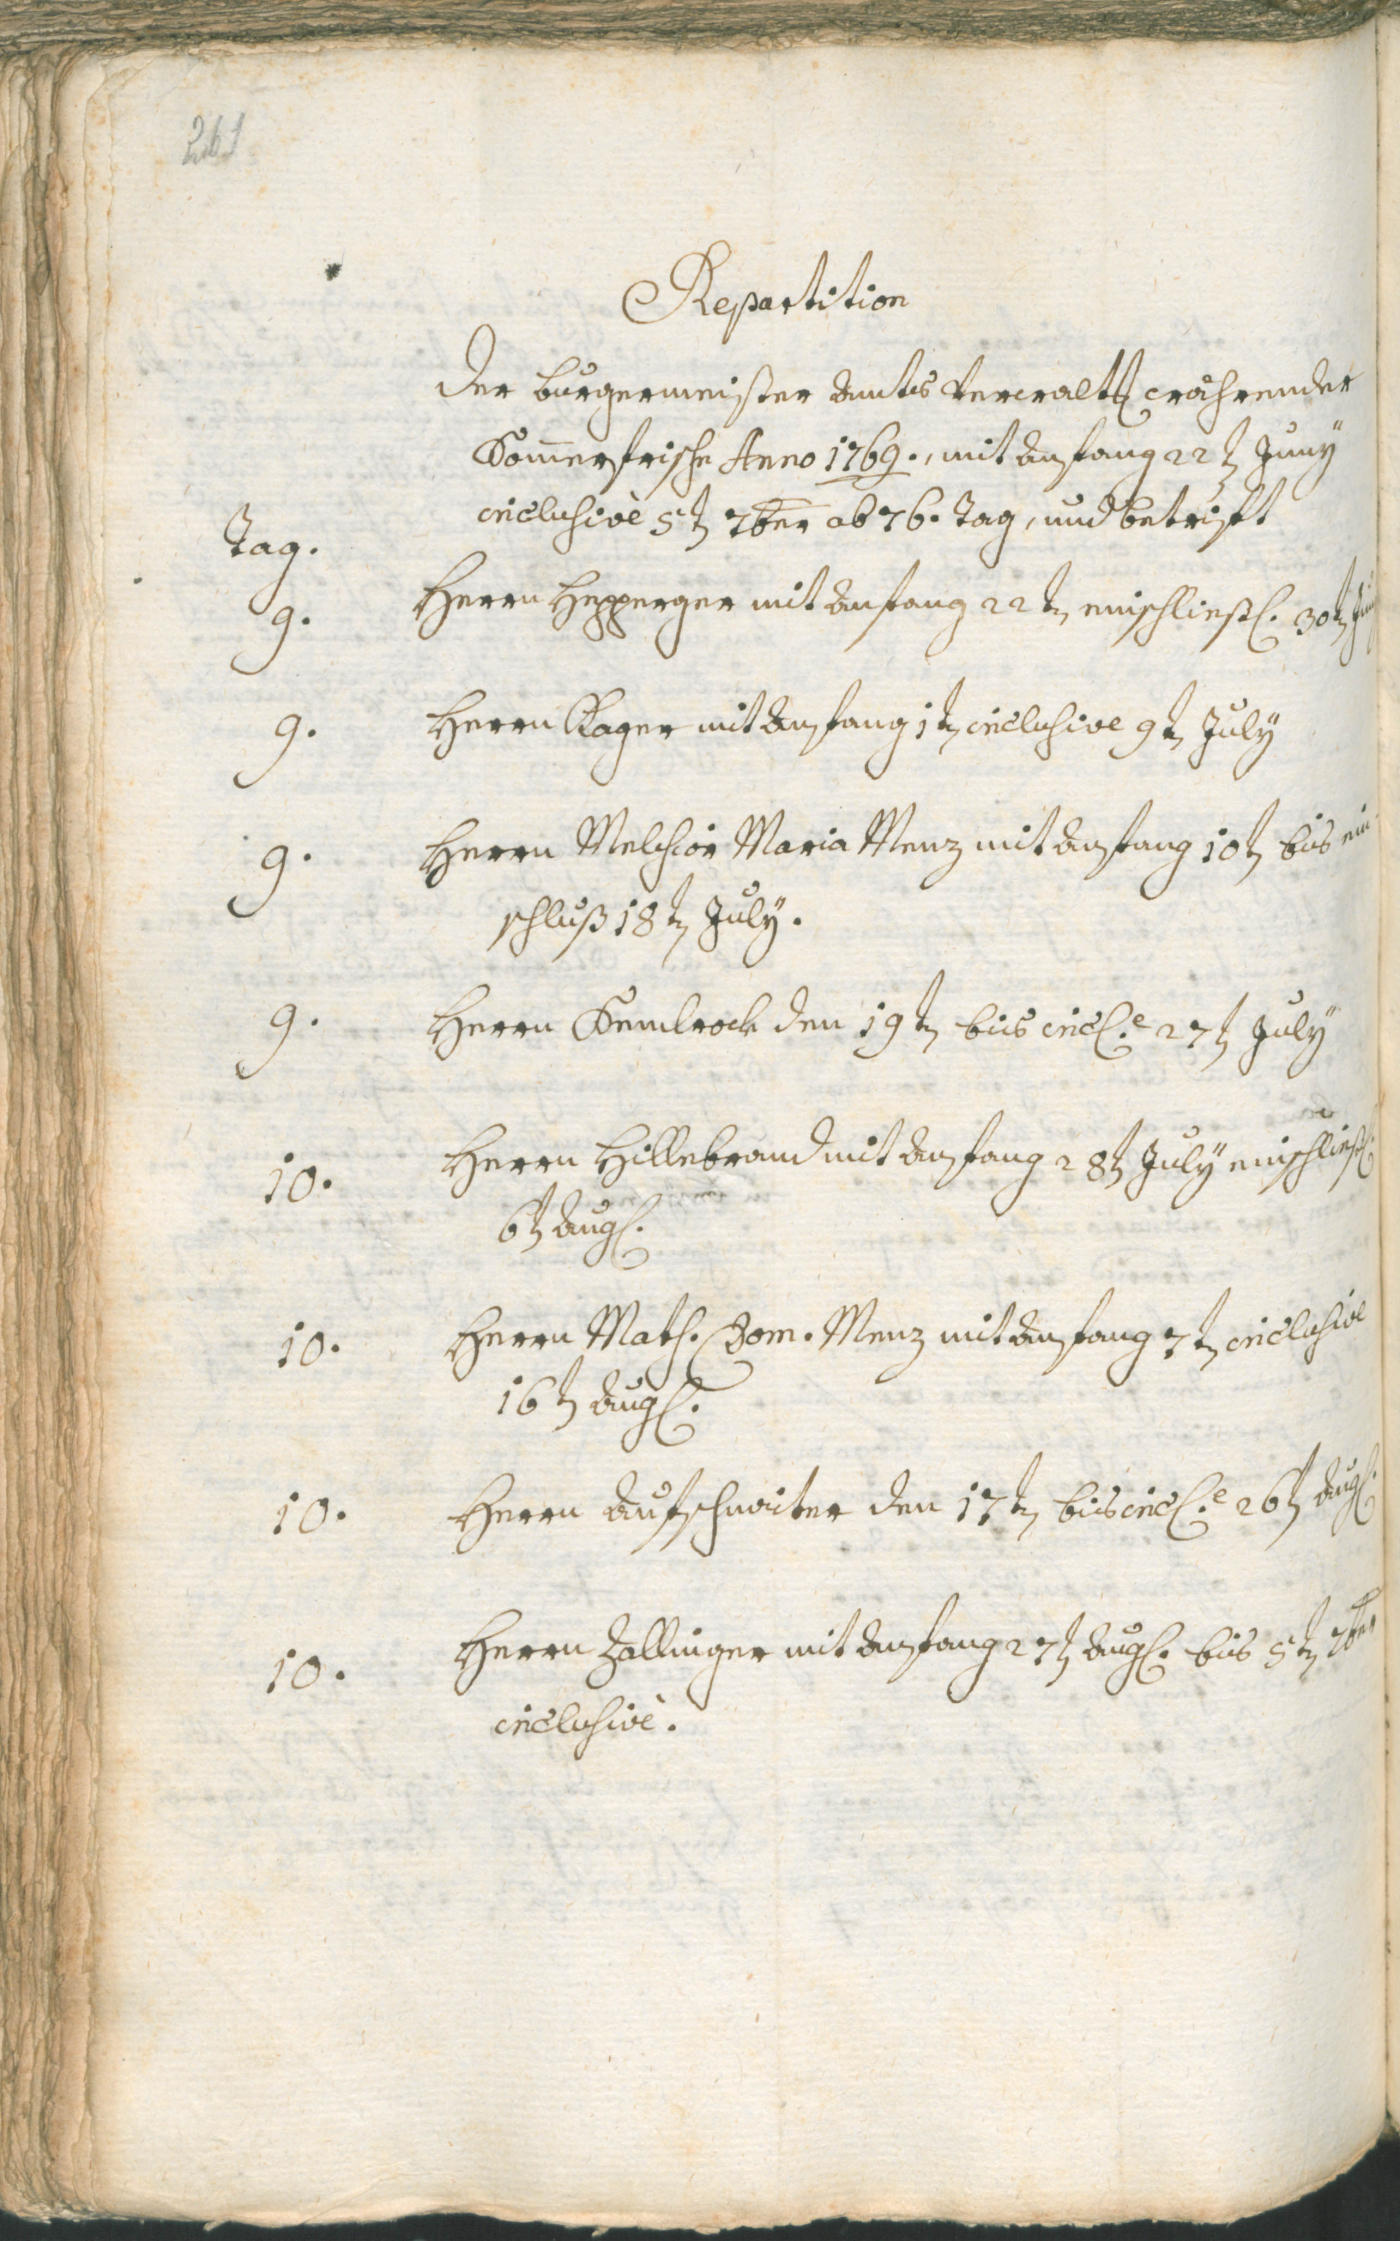 261
Repartition
Der burgermeister Ambts Verwaltt währender
Som̄erfrische Anno 1769., mit Anfang 22t Juny
inclusivè 5t 7ber ab 76. Tag, und betrifft
Tag.
9. Herrn Hepperger mit Anfang 22t einschliessl. 30t Juny
9. Herrn Rager mit Anfang 1t inclusive 9t July
9. Herrn Melchior Maria Menz mit Anfang 10t bis ein-
schluß 18t July.
9. Herrn Semlrock den 19t bis incl.e 27t July
10. Herrn Hillebrand mit Anfang 28t July einschliessl.
6t Aug.
10. Herrn Math. Dom. Menz mit Anfang 7t inclusive
16t Aug.
10. Herrn Aufschnaiter den 17t bis incl.e 26t Aug.
10. Herrn Zallinger mit Anfang 27t Aug. bis 5t 7ber
inclusivè.